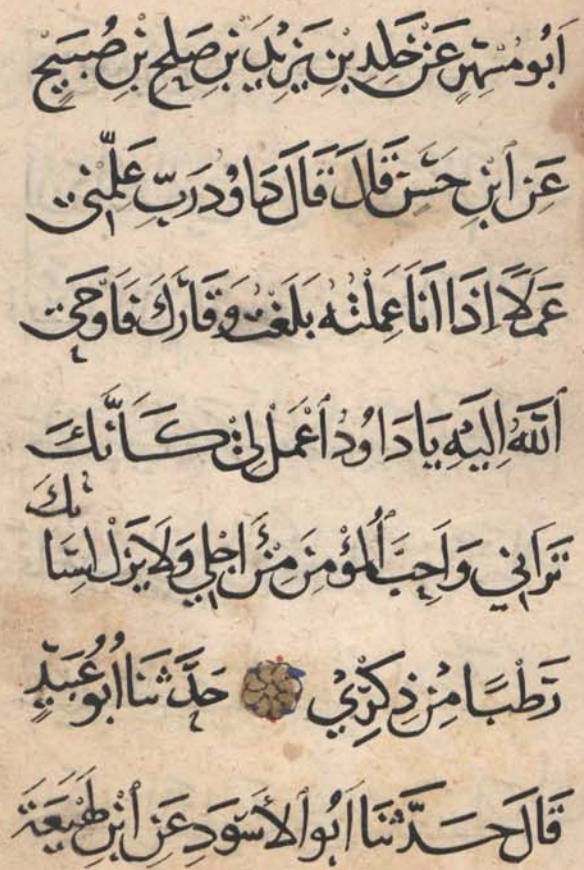 أَبُو مُسْهِرٍ عَنْ خَلِدِ بْنِ يَزِيْدَ بْنِ صَلِحِ بْنِ صُبَيْحٍ
عَنِ ابْنِ حَسَنٍ قَالَ قَالَ دَاوُدَ رَبِّ عَلِّمْنِي
عَمَلًا إِذَا أَنَا عَمِلْتُهُ بَلَغْتُ وَقَارَكَ فَأَوْحَى
اللّٰهُ إِلَيْهِ يَا دَاوُدُ اعْمَلْ لِيْ كَأَنَّكَ
تَرَانِي وَأَحِبَّ الْمُؤْمِنَ مِنْ أَجْلِي وَلَا يَزَلْ لِسَانُكَ
رَطْبًا مِنْ ذِكْرِيْ حَدَّثَنَا أَبُو عُبَيْدٍ
قَالَ حَدَّثَنَا أَبُو الْأَسْوَدِ عَنِ ابْنِ لَهِيْعَةَ